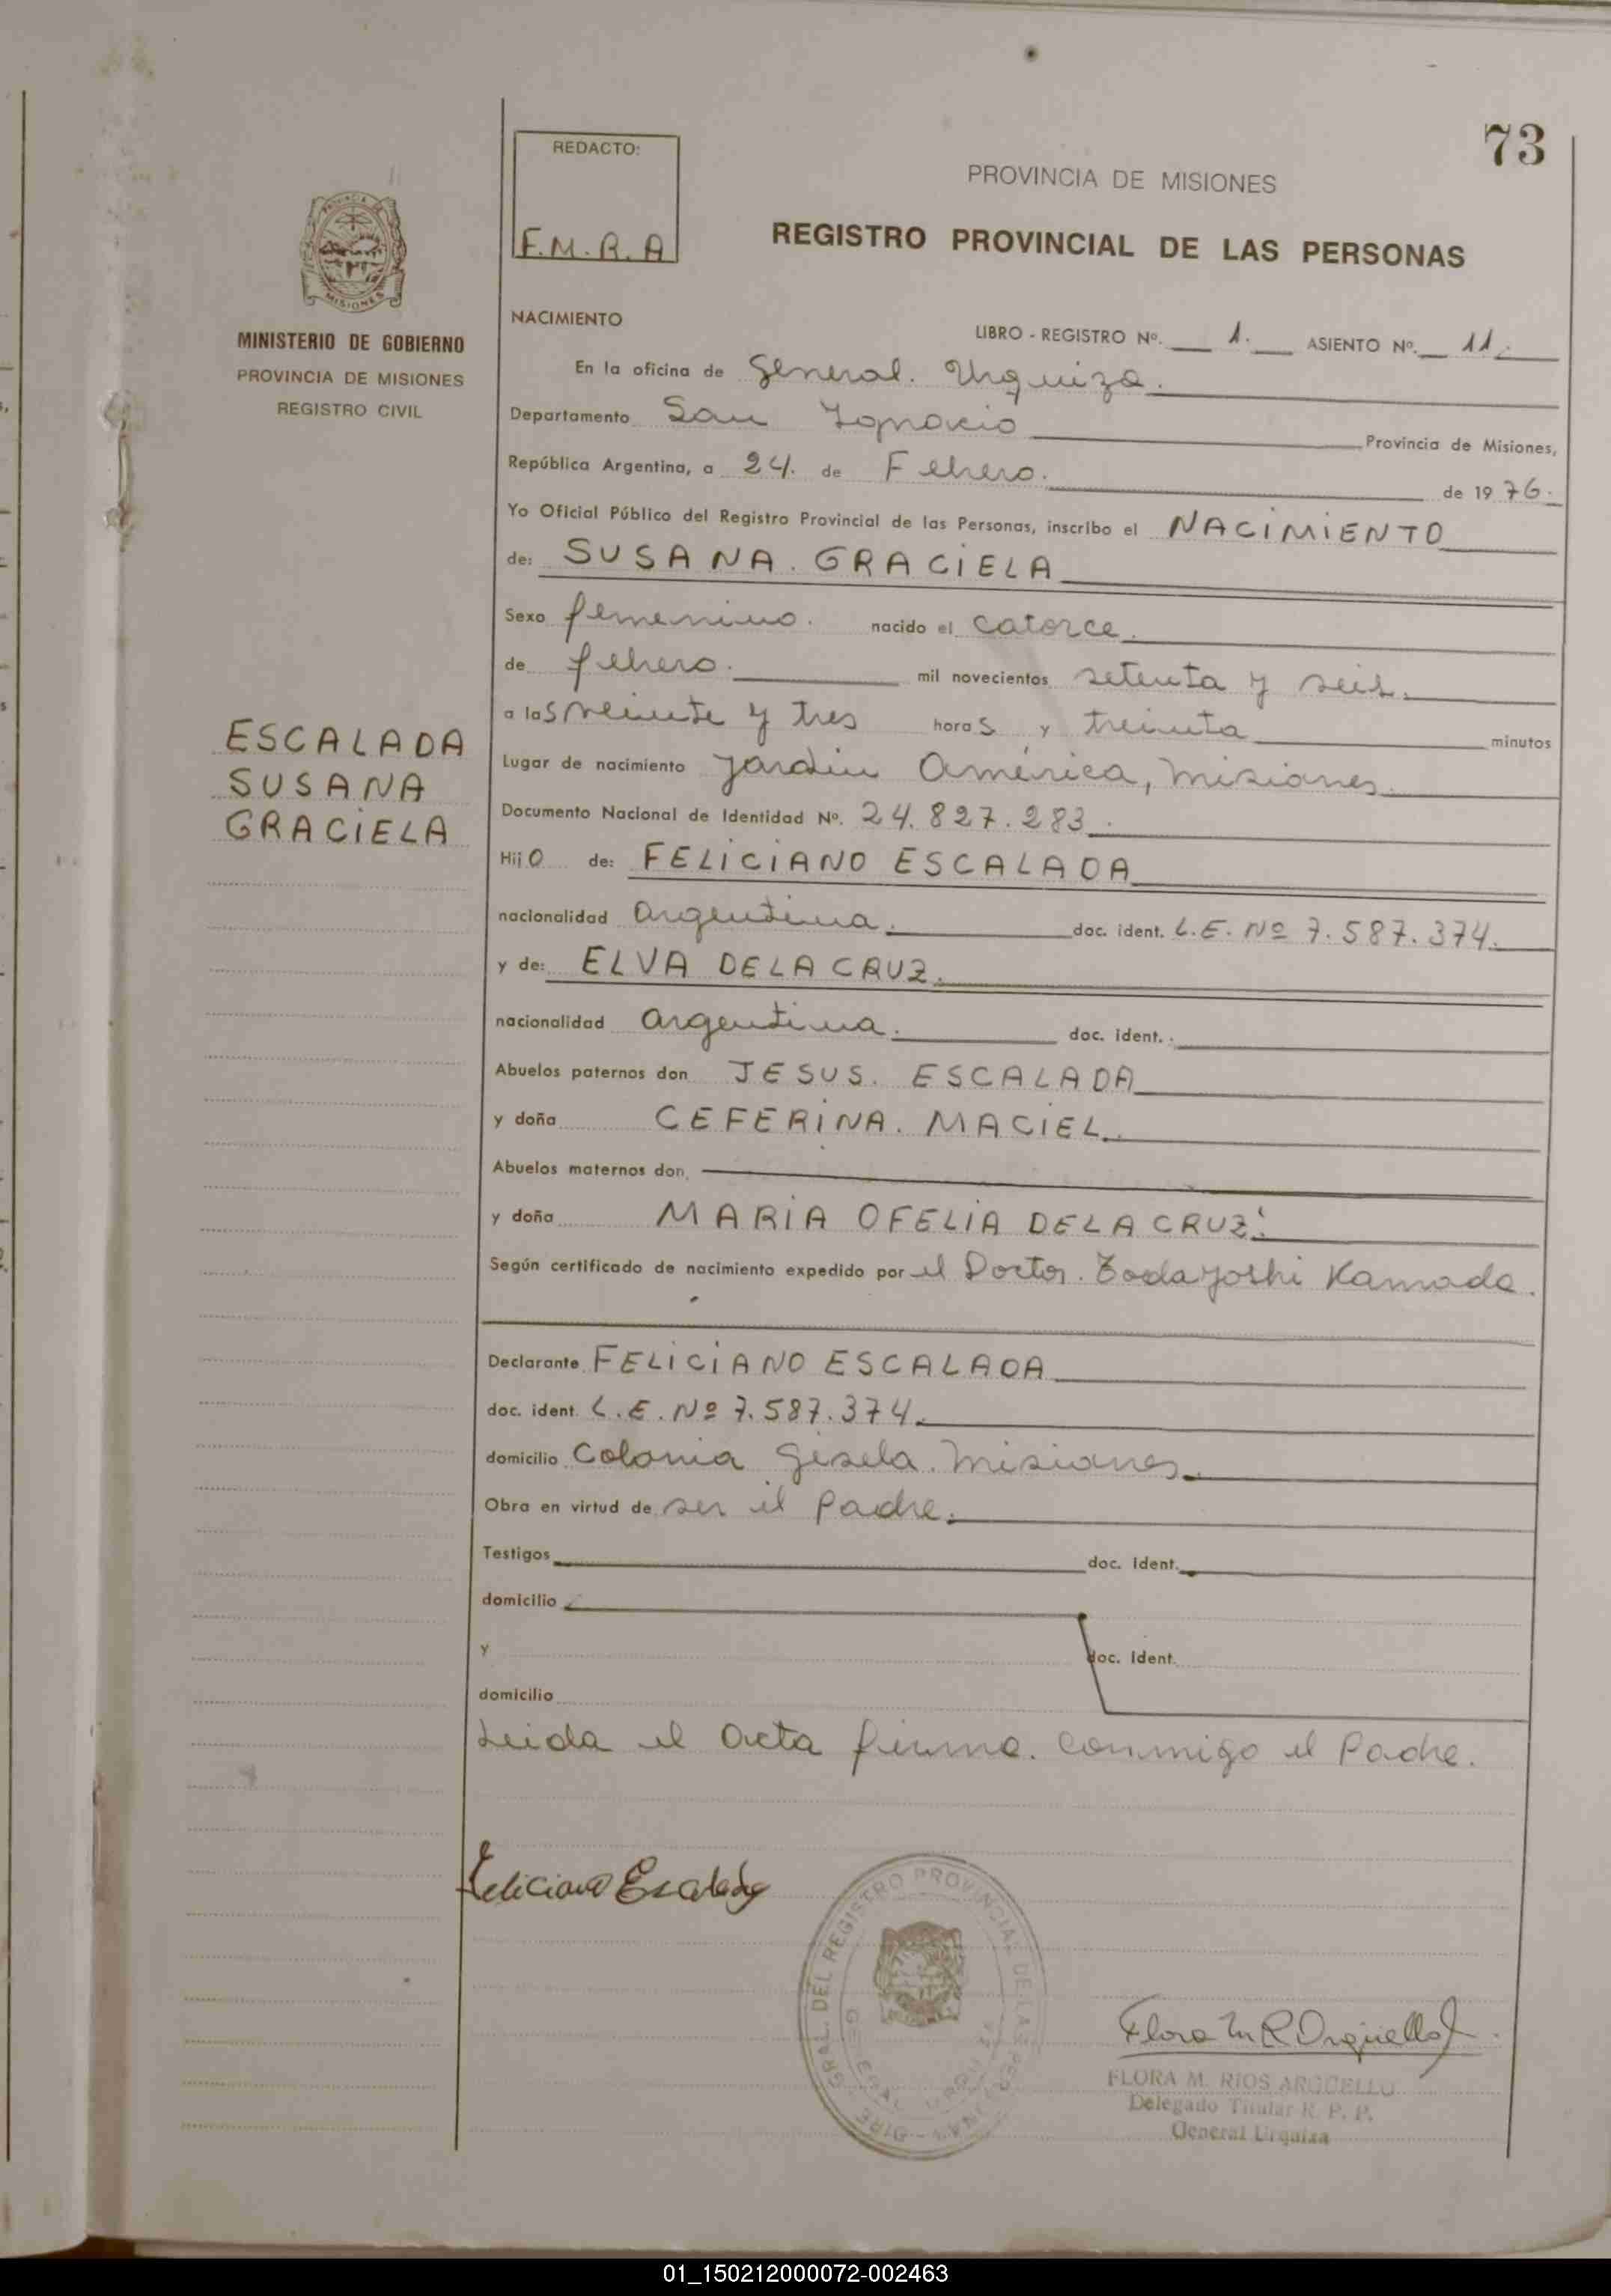 73
REDACTO:
F.M.R.A
PROVINCIA DE MISIONES
REGISTRO PROVINCIAL DE LAS PERSONAS
MISIONES
MINISTERIO DE GOBIERNO
PROVINCIA DE MISIONES
REGISTRO CIVIL
NACIMIENTO LIBRO - REGISTRO Nº. 1. ASIENTO Nº. 11.
En la oficina de General. Urquiza.
Departamento San Ignacio Provincia de Misiones,
República Argentina, a 24. de Febrero. de 1976.
Yo Oficial Público del Registro Provincial de las Personas, inscribo el NACIMIENTO
de: SUSANA. GRACIELA
Sexo femenino. nacido el catorce.
de febrero. mil novecientos setenta y seis.
a las veinte y tres horas y treinta minutos
ESCALADA
SUSANA
GRACIELA
Lugar de nacimiento Jardin América, Misiones.
Documento Nacional de Identidad Nº. 24.827.283.
Hijo de: FELICIANO ESCALADA
nacionalidad argentina. doc. ident. L.E. Nº 7.587.374.
y de: ELVA DELACRUZ.
nacionalidad argentina. doc. ident.:
Abuelos paternos don JESUS. ESCALADA
y doña CEFERINA. MACIEL.
Abuelos maternos don.
y doña MARIA OFELIA DELACRUZ.
Según certificado de nacimiento expedido por el Doctor. Todayoshi Kamada.
Declarante FELICIANO ESCALADA
doc. ident. L.E. Nº 7.587.374.
domicilio Colonia Gisela. Misiones.
Obra en virtud de ser el Padre.
Testigos doc. ident.
domicilio
y doc. ident.
domicilio
Leida el acta firma. conmigo el Padre.
Feliciano Escalada
DIRE GRAL. DEL REGISTRO PROVINCIAL DE LAS PERSONAS
GENERAL URQUIZA
Flora M R Argüello
FLORA M. RIOS ARGUELLO
Delegado Titular R. P. P.
General Urquiza
01_150212000072-002463